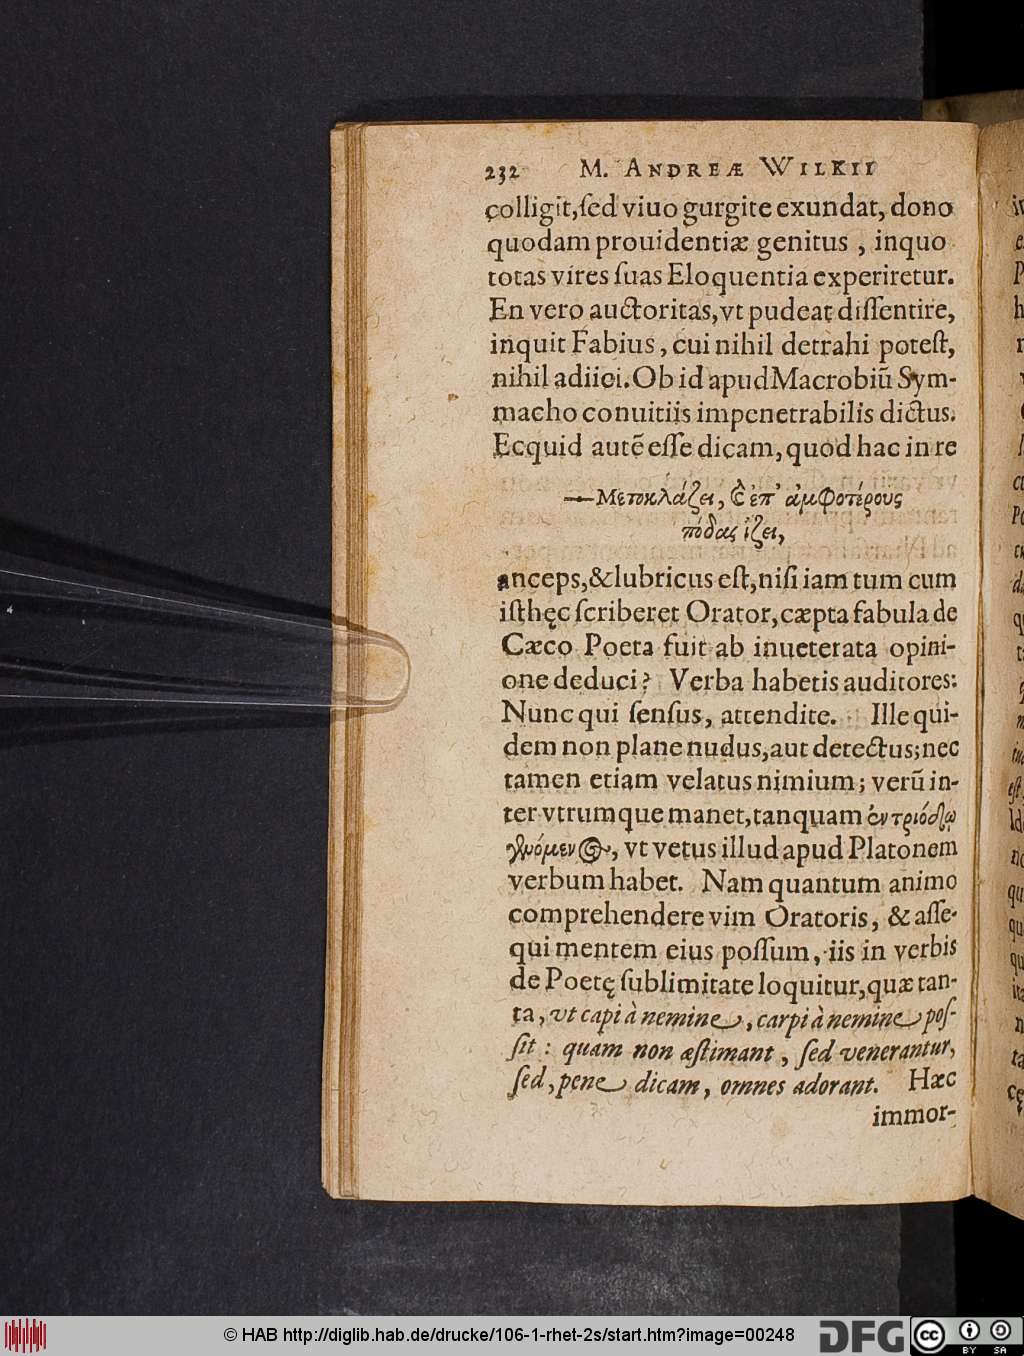 232 M. ANDREÆ WILKII
colligit, ſed viuo gurgite exundat, dono
quodam prouidentiæ genitus, in quo
totas vires ſuas Eloquentia experiretur.
En vero auctoritas, vt pudeat diſſentire,
inquit Fabius, cui nihil detrahi poteſt,
nihil adiici. Ob id apud Macrobiũ Sym-
macho conuitiis impenetrabilis dictus.
Ecquid autẽ eſſe dicam, quod hac in re
—Μετοκλάζει, ἐ ἐπ' ἀμφοτέρους
πόδας ἵζει,
anceps, & lubricus eſt, niſi iam tum cum
iſthęc ſcriberet Orator, cæpta fabula de
Cæco Poeta fuit ab inueterata opini-
one deduci? Verba habetis auditores:
Nunc qui ſenſus, attendite. Ille qui-
dem non plane nudus, aut detectus; nec
tamen etiam velatus nimium; verũ in-
ter vtrumque manet, tanquam ἐν τριόδῳ
γενόμενος, vt vetus illud apud Platonem
verbum habet. Nam quantum animo
comprehendere vim Oratoris, & aſſe-
qui mentem eius poſſum, iis in verbis
de Poetę ſublimitate loquitur, quæ tan-
ta, vt capi à nemine, carpi à nemine poſ-
ſit: quam non æſtimant, ſed venerantur,
ſed, pene dicam, omnes adorant. Hæc
immor-
© HAB http://diglib.hab.de/drucke/106-1-rhet-2s/start.htm?image=00248
DFG
cc
BY SA